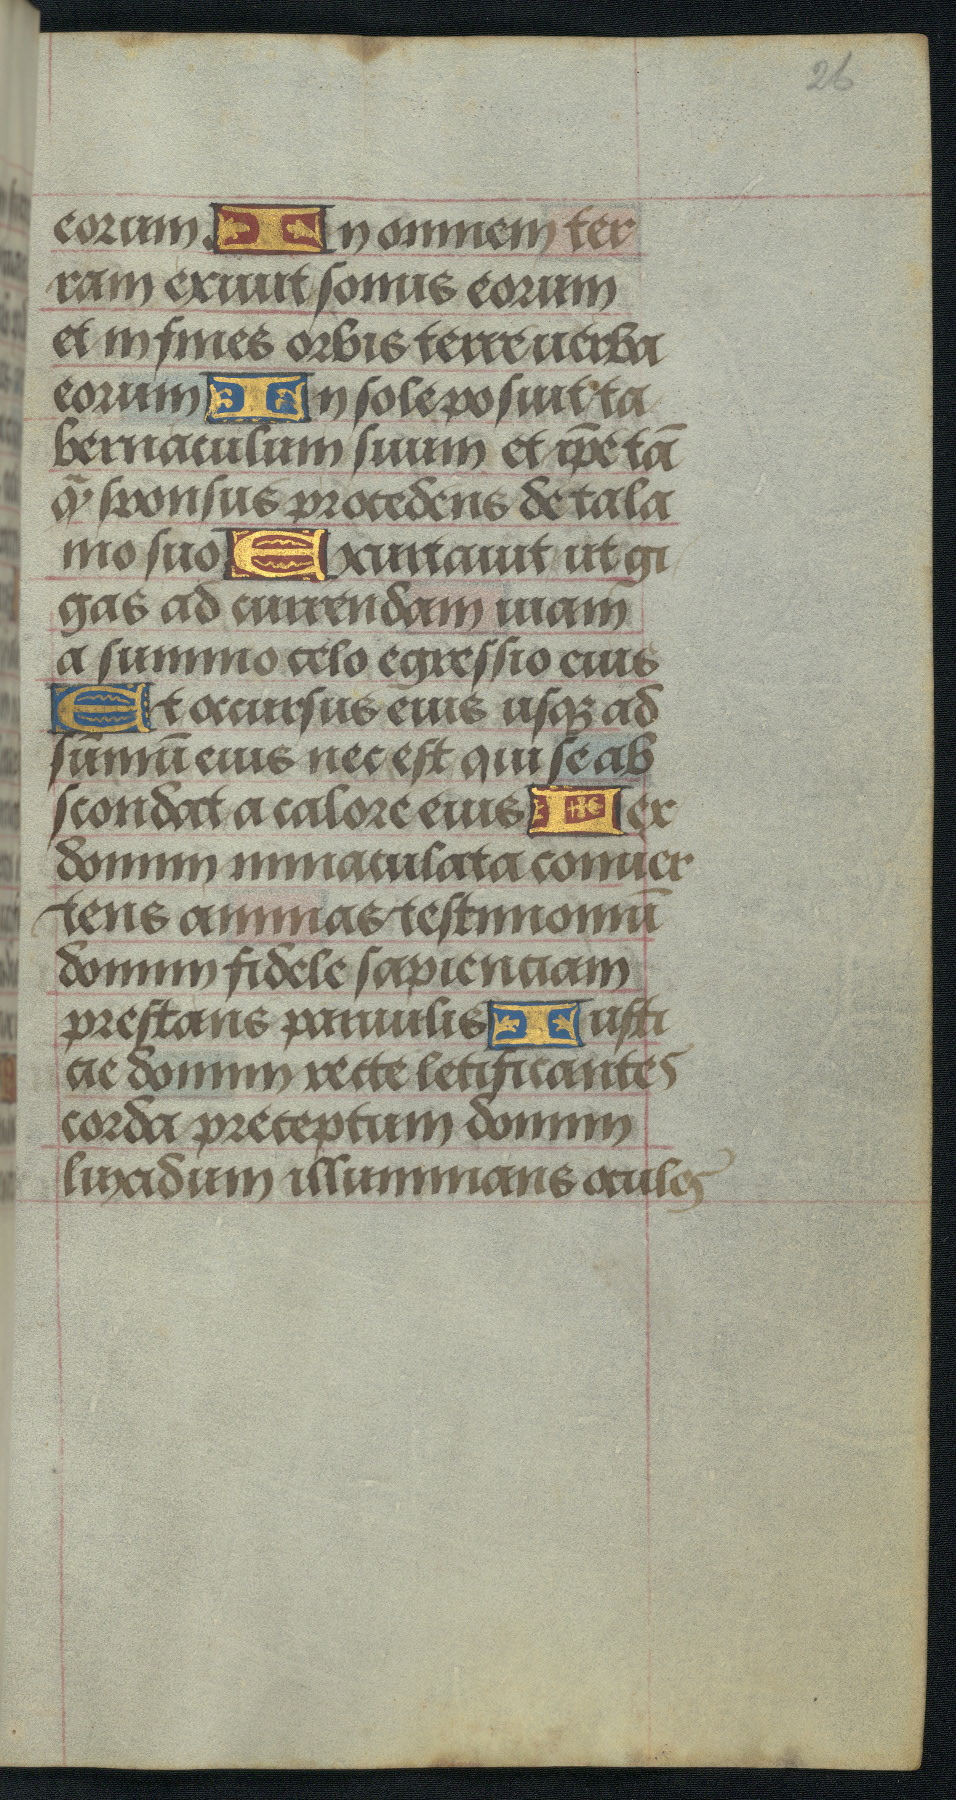 26
eorum. In omnem ter
ram exiuit sonus eorum
et in fines orbis terre uerba
eorum In sole posuit ta
bernaculum suum et ip̄e tā
q̄ sponsus procedens de tala
mo suo Exultauit ut gi
gas ad currendam uiam
a summo celo egressio eius
Et occursus eius usqꝫ ad
sūmū eius nec est qui se ab
scondat a calore eius Lex
domini inmaculata conuer
tens animas testimoniū
domini fidele sapienciam
prestans paruulis Iusti
cie domini recte letificantes
corda preceptum domini
lucidum illuminans oculos